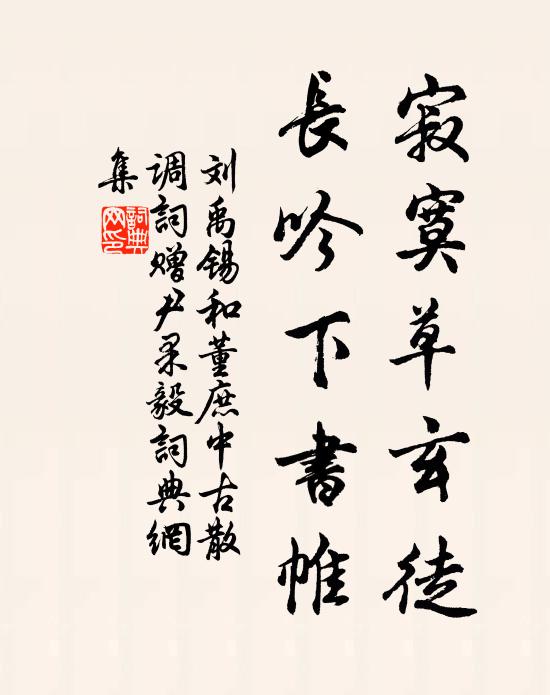 寂寞草玄徒
長吟下書帷
刘禹锡和董庶中古散
调詞赠尹果毅詞典網
集
詞典
网印